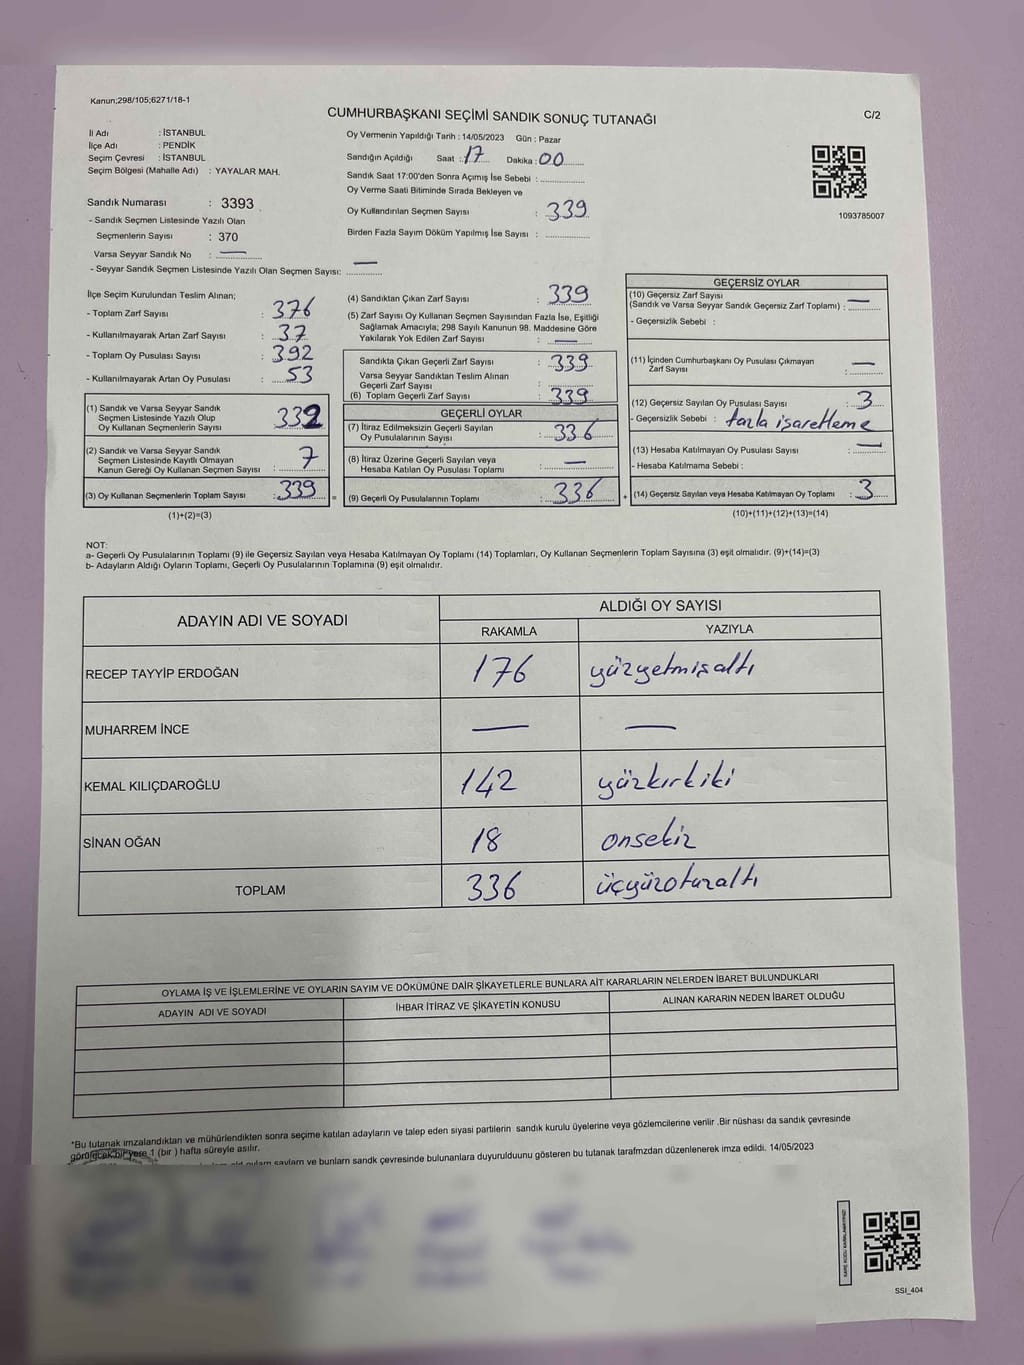 Kanun;298/105;6271/18-1
CUMHURBAŞKANI SEÇİMİ SANDIK SONUÇ TUTANAĞI
C/2
İl Adı : İSTANBUL
İlçe Adı : PENDİK
Seçim Çevresi : İSTANBUL
Seçim Bölgesi (Mahalle Adı) : YAYALAR MAH.
Sandık Numarası : 3393
- Sandık Seçmen Listesinde Yazılı Olan
Seçmenlerin Sayısı : 370
Varsa Seyyar Sandık No : —
- Seyyar Sandık Seçmen Listesinde Yazılı Olan Seçmen Sayısı: —
Oy Vermenin Yapıldığı Tarih : 14/05/2023 Gün : Pazar
Sandığın Açıldığı Saat : 17 Dakika : 00
Sandık Saat 17:00'den Sonra Açımış İse Sebebi :
Oy Verme Saati Bitiminde Sırada Bekleyen ve
Oy Kullandırılan Seçmen Sayısı : 339
Birden Fazla Sayım Döküm Yapılmış İse Sayısı :
1093785007
İlçe Seçim Kurulundan Teslim Alınan;
- Toplam Zarf Sayısı : 376
- Kullanılmayarak Artan Zarf Sayısı : 37
- Toplam Oy Pusulası Sayısı : 392
- Kullanılmayarak Artan Oy Pusulası : 53
(1) Sandık ve Varsa Seyyar Sandık
Seçmen Listesinde Yazılı Olup
Oy Kullanan Seçmenlerin Sayısı : 332
(2) Sandık ve Varsa Seyyar Sandık
Seçmen Listesinde Kayıtlı Olmayan
Kanun Gereği Oy Kullanan Seçmen Sayısı : 7
(3) Oy Kullanan Seçmenlerin Toplam Sayısı : 339
(1)+(2)=(3)
(4) Sandıktan Çıkan Zarf Sayısı : 339
(5) Zarf Sayısı Oy Kullanan Seçmen Sayısından Fazla İse, Eşitliği
Sağlamak Amacıyla; 298 Sayılı Kanunun 98. Maddesine Göre
Yakılarak Yok Edilen Zarf Sayısı : —
Sandıkta Çıkan Geçerli Zarf Sayısı : 339
Varsa Seyyar Sandıktan Teslim Alınan
Geçerli Zarf Sayısı :
(6) Toplam Geçerli Zarf Sayısı : 339
GEÇERLİ OYLAR
(7) İtiraz Edilmeksizin Geçerli Sayılan
Oy Pusulalarının Sayısı : 336
(8) İtiraz Üzerine Geçerli Sayılan veya
Hesaba Katılan Oy Pusulası Toplamı : —
= (9) Geçerli Oy Pusulalarının Toplamı : 336
GEÇERSİZ OYLAR
(10) Geçersiz Zarf Sayısı
(Sandık ve Varsa Seyyar Sandık Geçersiz Zarf Toplamı) : —
- Geçersizlik Sebebi :
(11) İçinden Cumhurbaşkanı Oy Pusulası Çıkmayan
Zarf Sayısı : —
(12) Geçersiz Sayılan Oy Pusulası Sayısı : 3
- Geçersizlik Sebebi : fazla işaretleme
(13) Hesaba Katılmayan Oy Pusulası Sayısı : —
- Hesaba Katılmama Sebebi :
+ (14) Geçersiz Sayılan veya Hesaba Katılmayan Oy Toplamı : 3
(10)+(11)+(12)+(13)=(14)
NOT:
a- Geçerli Oy Pusulalarının Toplamı (9) ile Geçersiz Sayılan veya Hesaba Katılmayan Oy Toplamı (14) Toplamları, Oy Kullanan Seçmenlerin Toplam Sayısına (3) eşit olmalıdır. (9)+(14)=(3)
b- Adayların Aldığı Oyların Toplamı, Geçerli Oy Pusulalarının Toplamına (9) eşit olmalıdır.
ADAYIN ADI VE SOYADI
ALDIĞI OY SAYISI
RAKAMLA YAZIYLA
RECEP TAYYİP ERDOĞAN 176 yüzyetmişaltı
MUHARREM İNCE — —
KEMAL KILIÇDAROĞLU 142 yüzkırkiki
SİNAN OĞAN 18 onsekiz
TOPLAM 336 üçyüzotuzaltı
OYLAMA İŞ VE İŞLEMLERİNE VE OYLARIN SAYIM VE DÖKÜMÜNE DAİR ŞİKAYETLERLE BUNLARA AİT KARARLARIN NELERDEN İBARET BULUNDUKLARI
ADAYIN ADI VE SOYADI İHBAR İTİRAZ VE ŞİKAYETİN KONUSU ALINAN KARARIN NEDEN İBARET OLDUĞU
*Bu tutanak imzalandıktan ve mühürlendikten sonra seçime katılan adayların ve talep eden siyasi partilerin sandık kurulu üyelerine veya gözlemcilerine verilir .Bir nüshası da sandık çevresinde
görülecek bir yere 1 (bir ) hafta süreyle asılır.
ve bunların sandk çevresinde bulunanlara duyurulduunu gösteren bu tutanak tarafmzdan düzenlenerek imza edildi. 14/05/2023
SSI_404